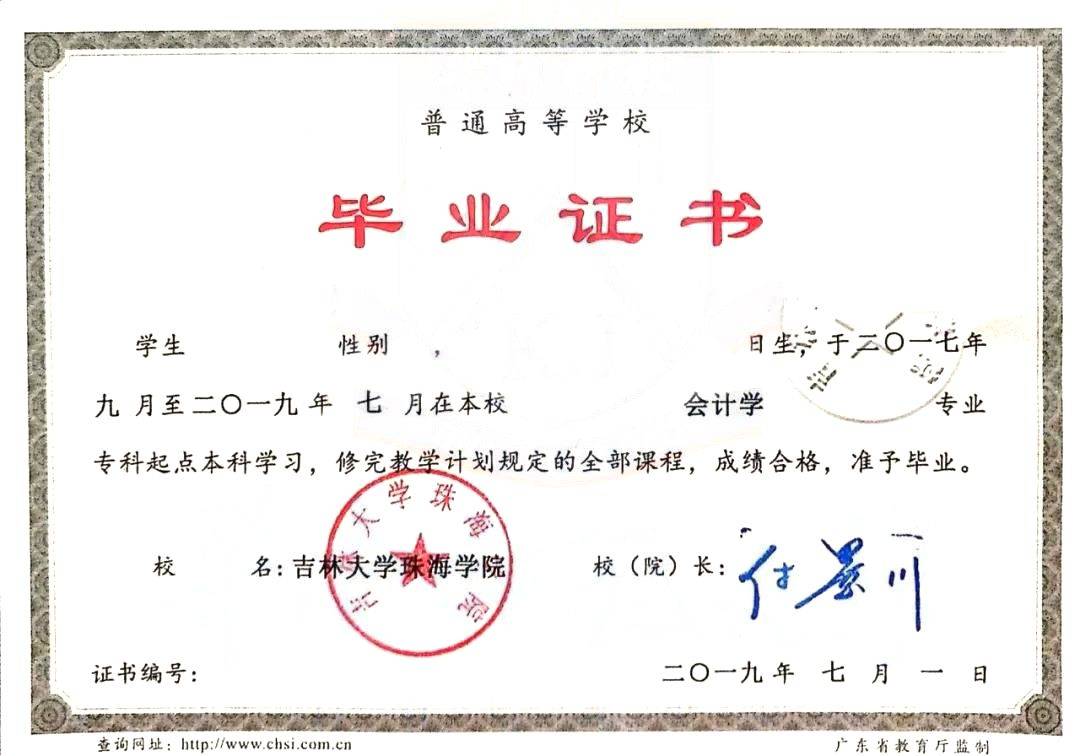 普通高等学校
毕业证书
学生 性别 , 日生，于二〇一七年
九 月至二〇一九年 七 月在本校 会计学 专业
专科起点本科学习，修完教学计划规定的全部课程，成绩合格，准予毕业。
校 名：吉林大学珠海学院 校（院）长：付景川
吉林大学珠海学院
证书编号： 二〇一九年 七 月 一 日
查询网址：http://www.chsi.com.cn 广东省教育厅监制